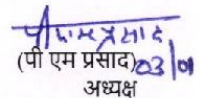 पी एम प्रसाद
(पी एम प्रसाद) 03/01
अध्यक्ष